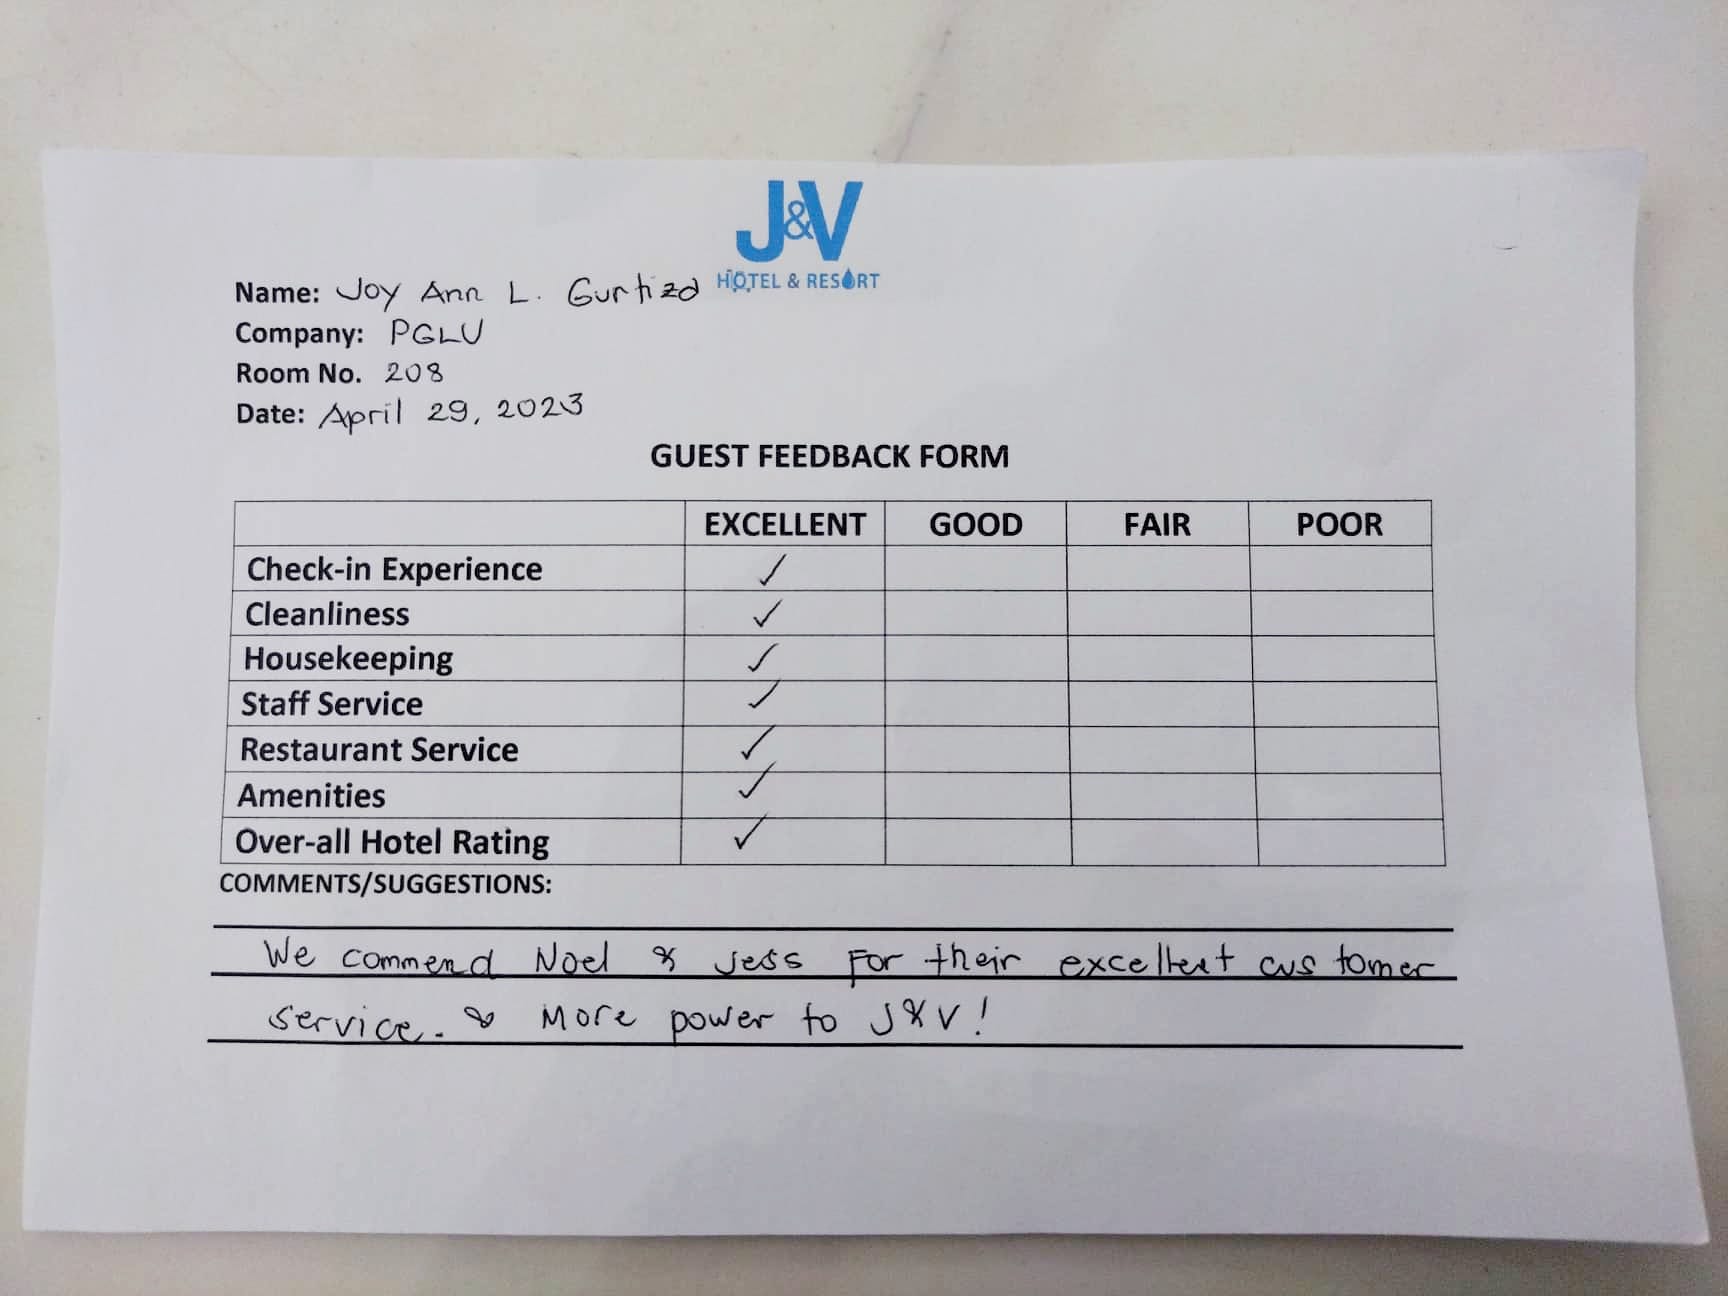 J&V
HOTEL & RESORT
Name: Joy Ann L. Gurtiza
Company: PGLU
Room No. 208
Date: April 29, 2023
GUEST FEEDBACK FORM
EXCELLENT GOOD FAIR POOR
Check-in Experience ✓
Cleanliness ✓
Housekeeping ✓
Staff Service ✓
Restaurant Service ✓
Amenities ✓
Over-all Hotel Rating ✓
COMMENTS/SUGGESTIONS:
We commend Noel & Jess For their excellent customer
service. More power to J&V!